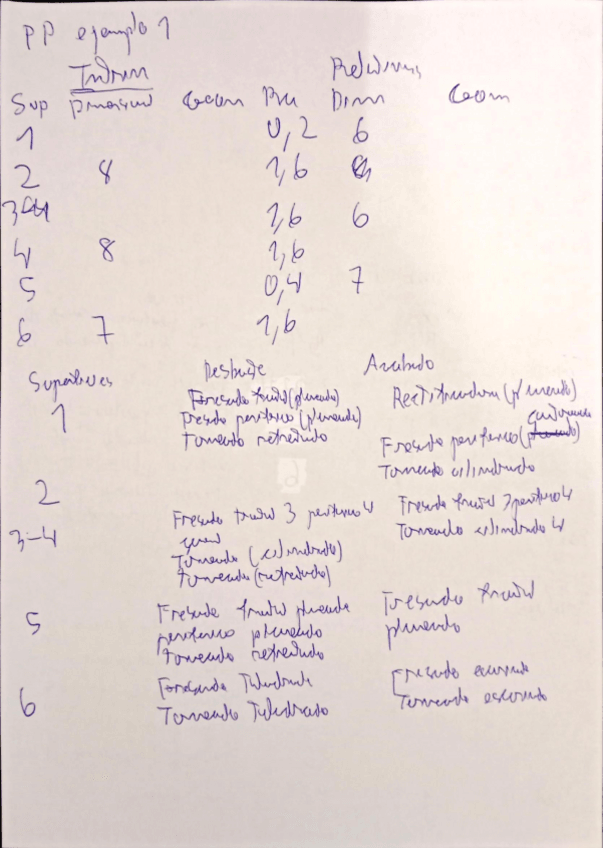 PP ejemplo 1
Sup Geom Ra Dim Geom
1 0,2 6
2 8 1,6
3-4 1,6 6
4 8 1,6
5 0,4 7
6 7 1,6
Superficies Desbaste Acabado
1 Fresado frontal (planeado) Rectificadora (planeado)
Fresado periférico (planeado)
Torneado refrentado Fresado periférico
2 Torneado cilindrado
3-4 Fresado frontal 3 periférico 4 Fresado frontal 3 periférico 4
Torneado (cilindrado) Torneado cilindrado 4
Torneado (refrentado)
5 Fresado frontal planeado Fresado frontal
periférico planeado planeado
Torneado refrentado
6 Taladrado Fresado
Torneado Taladrado Torneado